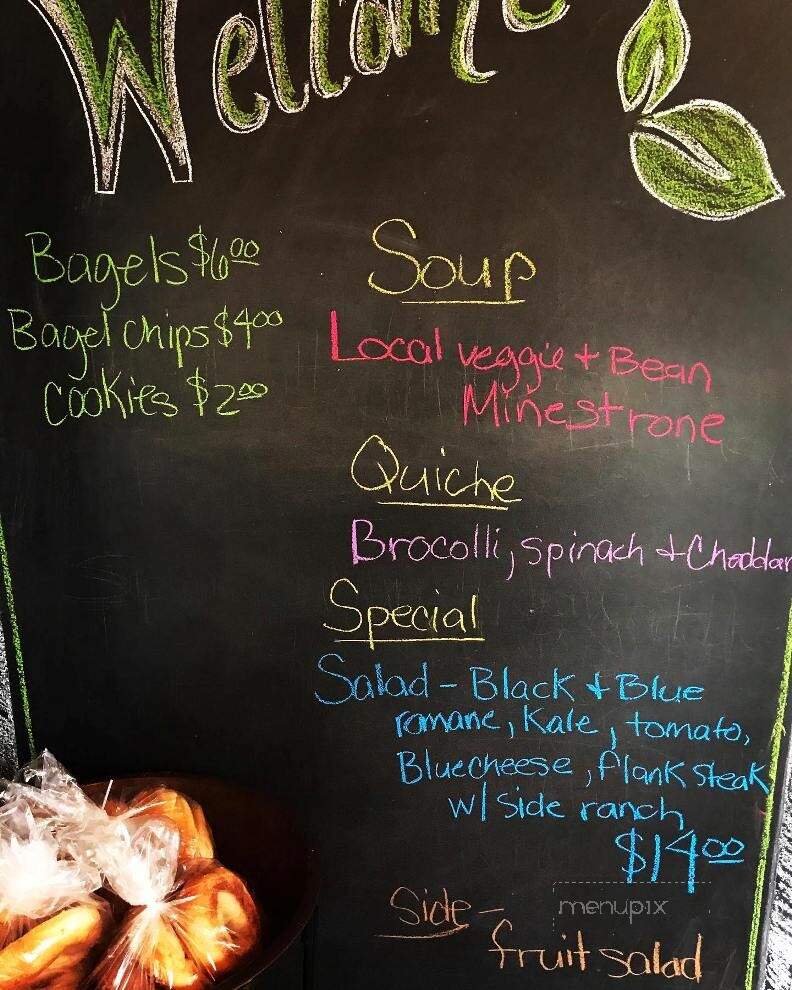 Welcome
Bagels $6.00
Bagel chips $4.00
Cookies $2.00
Soup
Local veggie + Bean
Minestrone
Quiche
Brocolli, spinach + Cheddar
Special
Salad - Black + Blue
romane, Kale, tomato,
Bluecheese, flank steak
w/ side ranch
$14.00
Side -
fruit salad
menupix